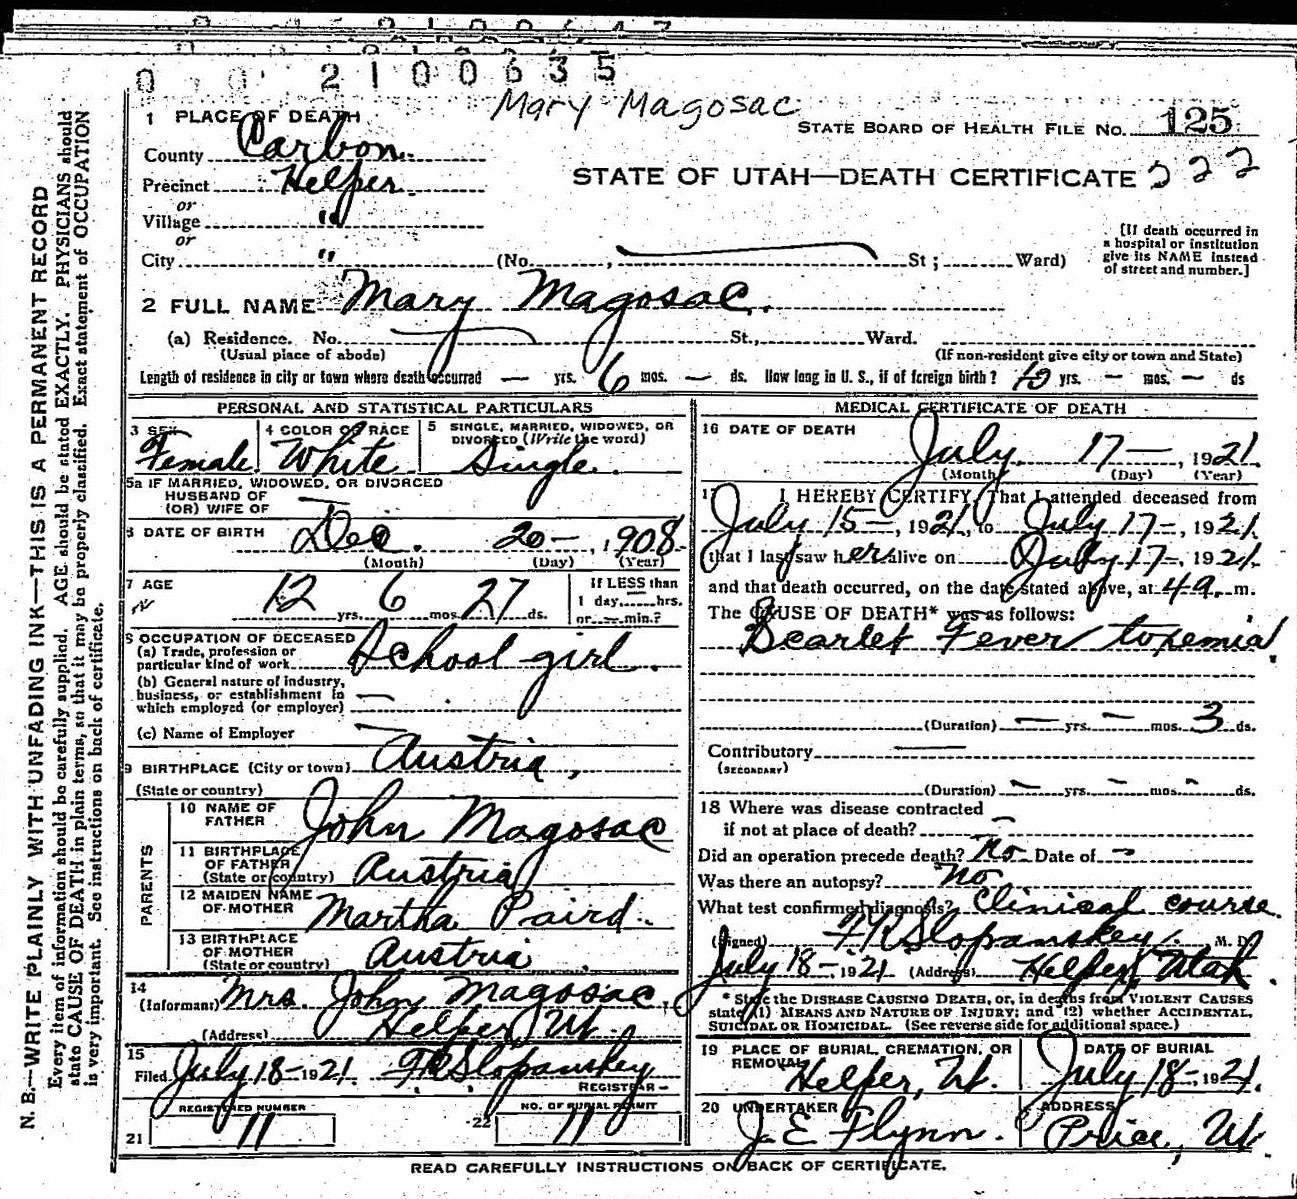 0 0 2 1 0 0 6 3 5
Mary Magosac
1 PLACE OF DEATH
STATE BOARD OF HEALTH FILE NO. 125
County Carbon
Precinct Helper
STATE OF UTAH—DEATH CERTIFICATE 222
or
Village "
or
City " (No. , St ; Ward)
[If death occurred in a hospital or institution give its NAME instead of street and number.]
2 FULL NAME Mary Magosac.
(a) Residence. No. St., Ward.
(Usual place of abode) (If non-resident give city or town and State)
Length of residence in city or town where death occurred — yrs. 6 mos. — ds. How long in U. S., if of foreign birth? 10 yrs. — mos. — ds
PERSONAL AND STATISTICAL PARTICULARS
3 SEX Female
4 COLOR OR RACE White
5 SINGLE, MARRIED, WIDOWED, OR DIVORCED (Write the word) Single.
5a IF MARRIED, WIDOWED, OR DIVORCED
HUSBAND OF
(OR) WIFE OF —
6 DATE OF BIRTH Dec. 20—, 1908
(Month) (Day) (Year)
7 AGE 12 yrs. 6 mos. 27 ds.
If LESS than 1 day, — hrs. or — min.?
8 OCCUPATION OF DECEASED
(a) Trade, profession or particular kind of work School girl.
(b) General nature of industry, business, or establishment in which employed (or employer) —
(c) Name of Employer —
9 BIRTHPLACE (City or town) Austria,
(State or country)
PARENTS
10 NAME OF FATHER John Magosac
11 BIRTHPLACE OF FATHER (State or country) Austria
12 MAIDEN NAME OF MOTHER Martha Paird.
13 BIRTHPLACE OF MOTHER (State or country) Austria
14 (Informant) Mrs. John Magosac,
(Address) Helper Ut.
15 Filed July 18— 1921 F R Slopanskey
REGISTRAR
REGISTERED NUMBER
21 11
NO. OF BURIAL PERMIT
22 11
MEDICAL CERTIFICATE OF DEATH
16 DATE OF DEATH July 17—, 1921
(Month) (Day) (Year)
17 I HEREBY CERTIFY, That I attended deceased from
July 15—, 1921, to July 17—, 1921
that I last saw her alive on July 17—, 1921
and that death occurred, on the date stated above, at 4 a. m.
The CAUSE OF DEATH* was as follows:
Scarlet Fever toxemia
(Duration) — yrs. — mos. 3 ds.
Contributory —
(SECONDARY)
(Duration) — yrs. — mos. — ds.
18 Where was disease contracted
if not at place of death? —
Did an operation precede death? no Date of —
Was there an autopsy? no
What test confirmed diagnosis? Clinical course
(Signed) F R Slopanskey. M. D.
July 18—, 1921 (Address) Helper, Utah
* State the DISEASE CAUSING DEATH, or, in deaths from VIOLENT CAUSES
state (1) MEANS AND NATURE OF INJURY; and (2) whether ACCIDENTAL,
SUICIDAL OR HOMICIDAL. (See reverse side for additional space.)
19 PLACE OF BURIAL, CREMATION, OR REMOVAL Helper, Ut.
DATE OF BURIAL July 18—, 1921.
20 UNDERTAKER J. E. Flynn.
ADDRESS Price, Ut.
READ CAREFULLY INSTRUCTIONS ON BACK OF CERTIFICATE.
N. B.—WRITE PLAINLY WITH UNFADING INK—THIS IS A PERMANENT RECORD
Every item of information should be carefully supplied. AGE should be stated EXACTLY. PHYSICIANS should
state CAUSE OF DEATH in plain terms, so that it may be properly classified. Exact statement of OCCUPATION
is very important. See instructions on back of certificate.